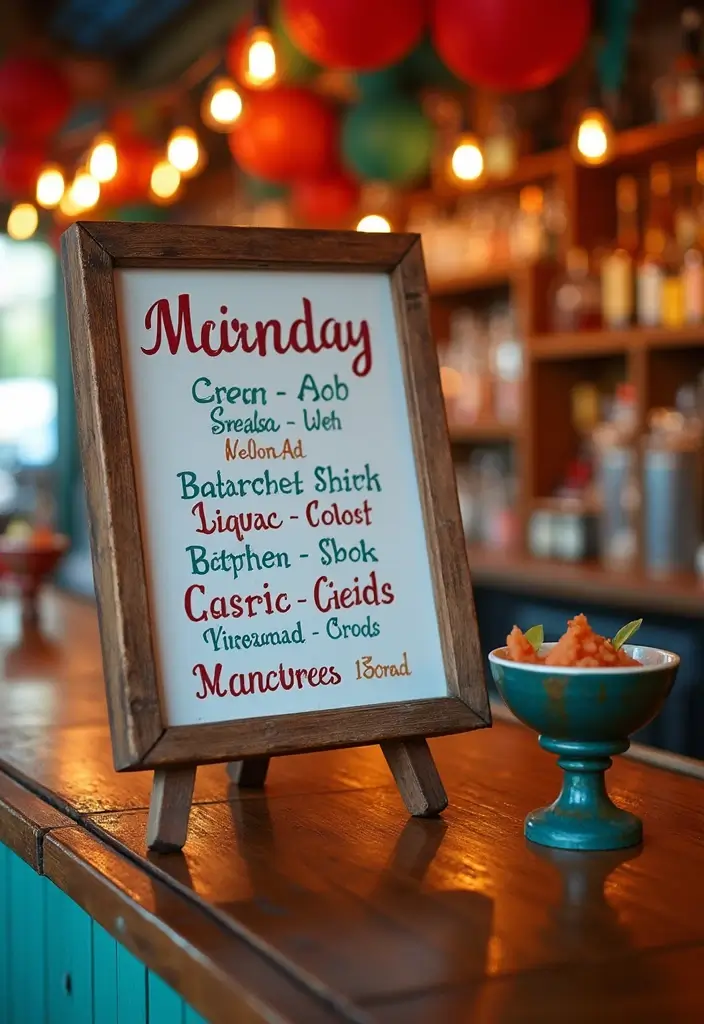 Mcirnday
Crern - Aob
Srealsa - Weh
NeDon Ad
Batarchet Shirk
Liquac - Colost
Bitphen - Sbok
Casric - Cieids
Yireaumad - Crods
Manctvrees 13orad